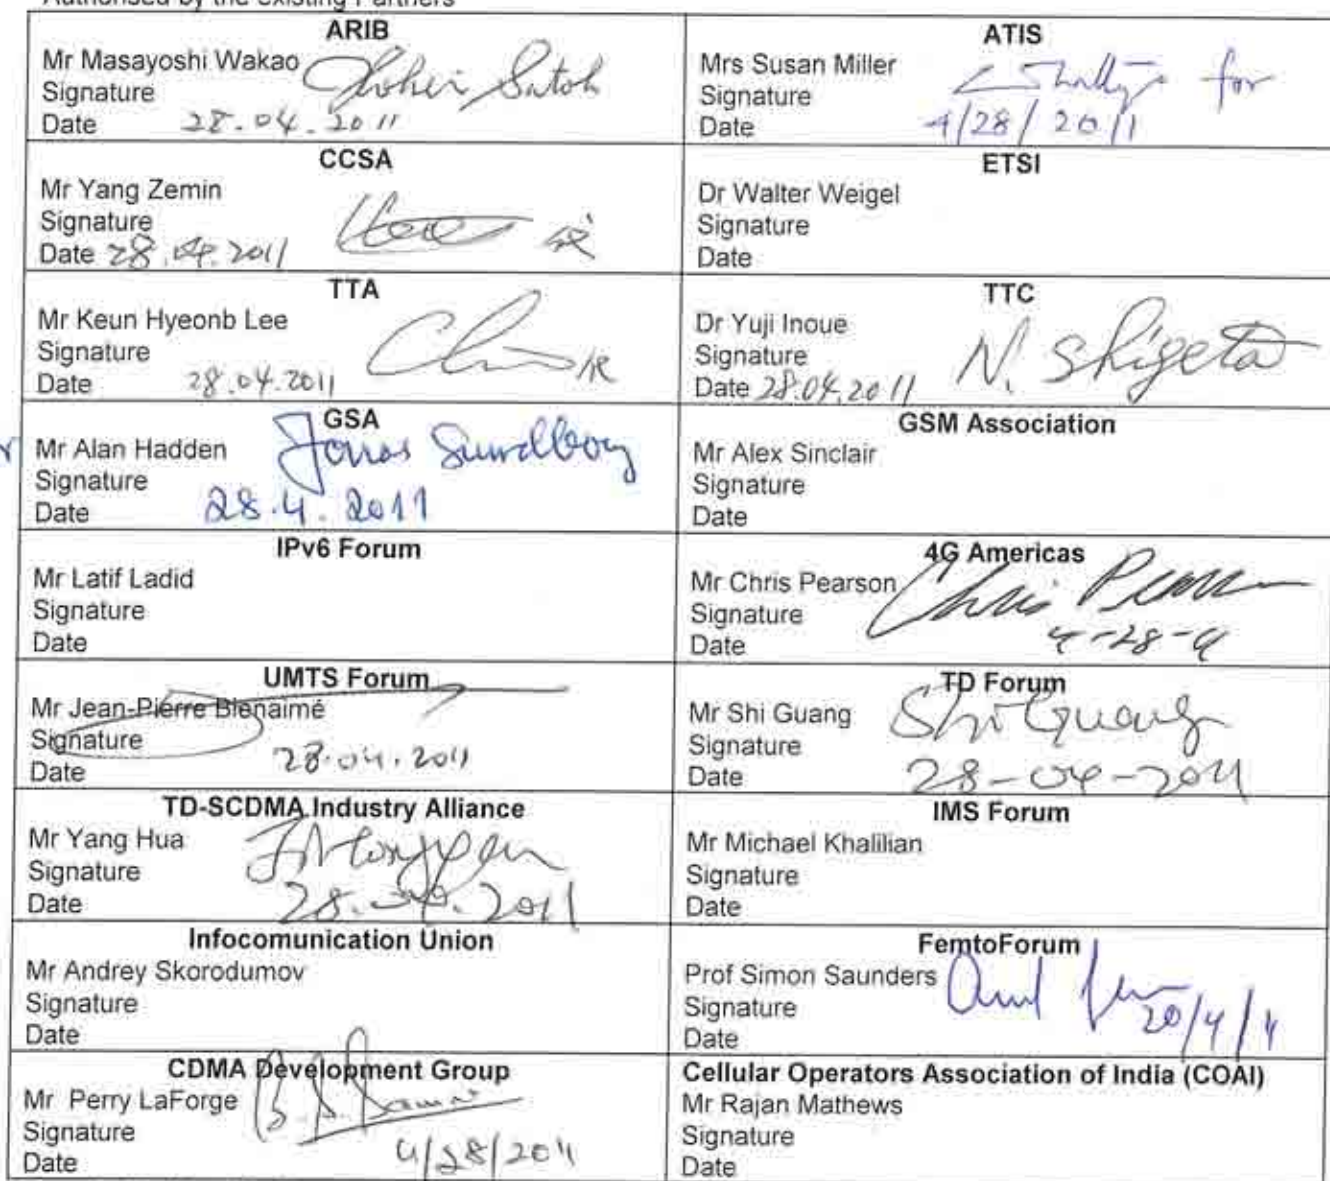 Authorised by the existing Partners
ARIB
Mr Masayoshi Wakao
Signature Kohei Satoh
Date 28.04.2011
ATIS
Mrs Susan Miller
Signature for
Date 4/28/2011
CCSA
Mr Yang Zemin
Signature
Date 28.04.2011
ETSI
Dr Walter Weigel
Signature
Date
TTA
Mr Keun Hyeonb Lee
Signature
Date 28.04.2011
TTC
Dr Yuji Inoue
Signature N. Shigeta
Date 28.04.2011
GSA
Mr Alan Hadden
Signature Jonas Sundborg
Date 28.4.2011
GSM Association
Mr Alex Sinclair
Signature
Date
IPv6 Forum
Mr Latif Ladid
Signature
Date
4G Americas
Mr Chris Pearson
Signature Chris Pearson
Date 4-28-11
UMTS Forum
Mr Jean-Pierre Bienaimé
Signature
Date 28.04.2011
TD Forum
Mr Shi Guang
Signature Shi Guang
Date 28-04-2011
TD-SCDMA Industry Alliance
Mr Yang Hua
Signature
Date 28.04.2011
IMS Forum
Mr Michael Khalilian
Signature
Date
Infocomunication Union
Mr Andrey Skorodumov
Signature
Date
FemtoForum
Prof Simon Saunders
Signature
Date 20/4/11
CDMA Development Group
Mr Perry LaForge
Signature
Date 4/28/2011
Cellular Operators Association of India (COAI)
Mr Rajan Mathews
Signature
Date